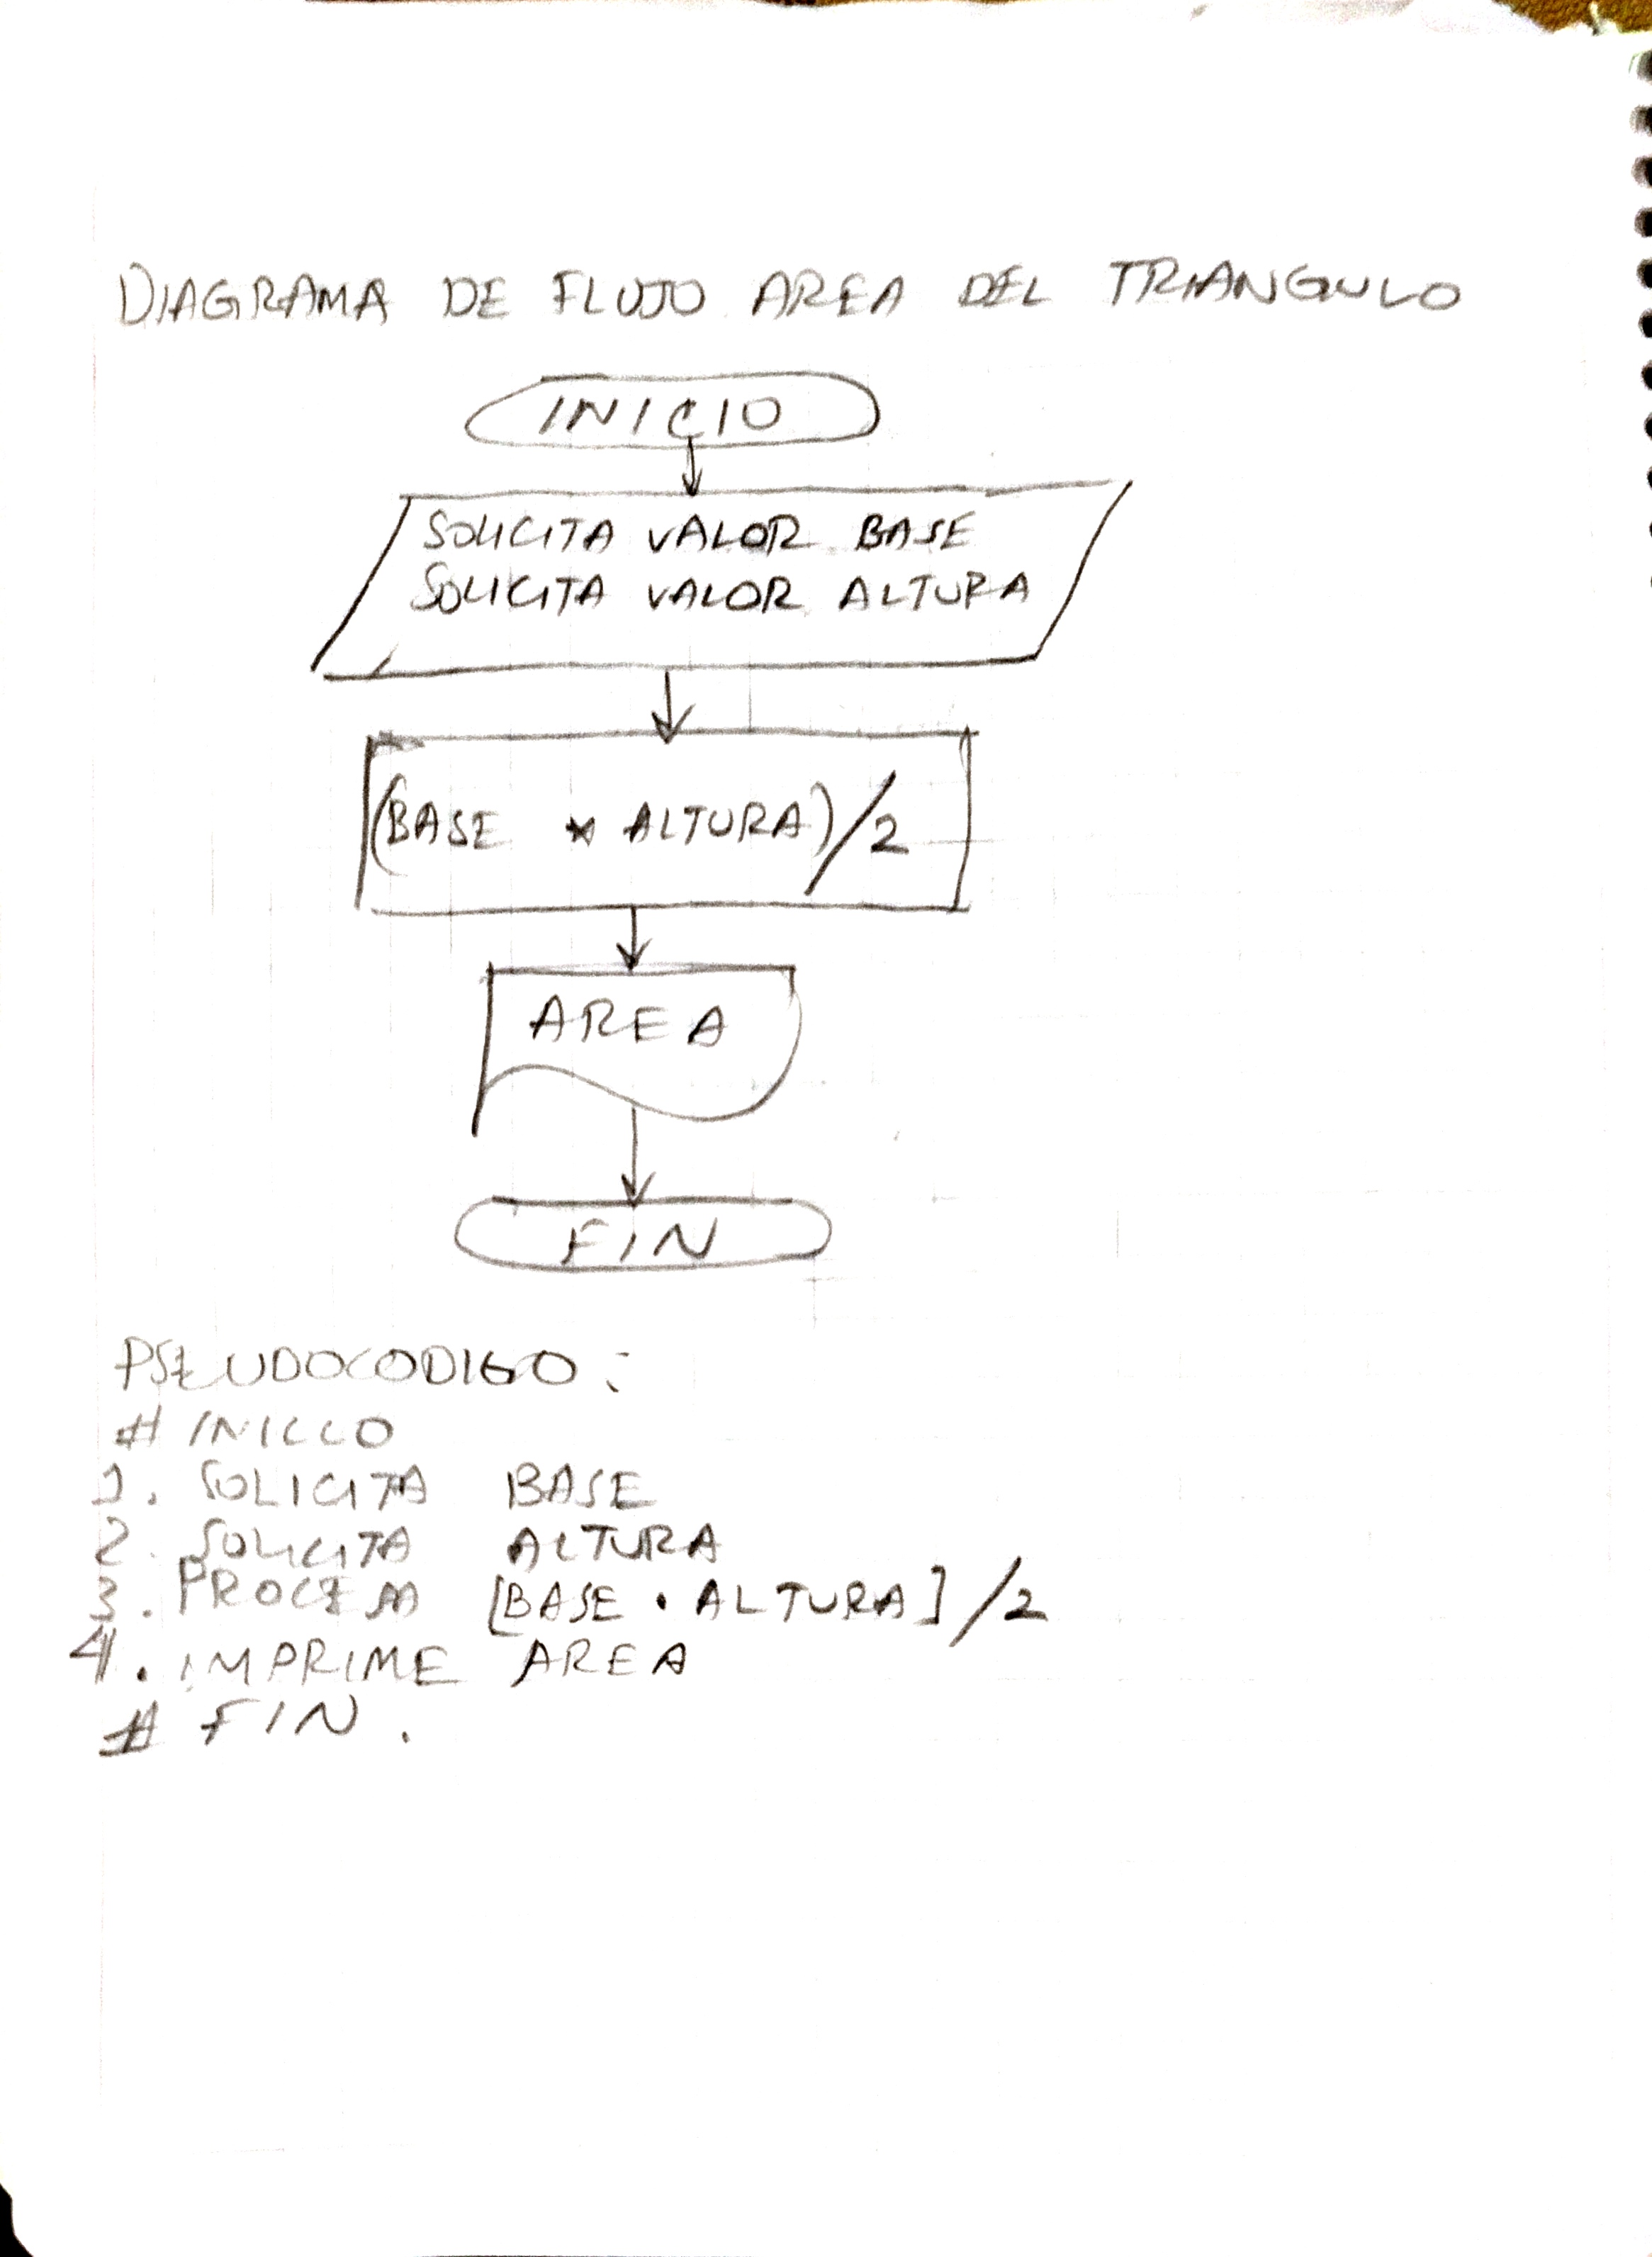 DIAGRAMA DE FLUJO AREA DEL TRIANGULO
INICIO
SOLICITA VALOR BASE
SOLICITA VALOR ALTURA
(BASE * ALTURA)/2
AREA
FIN
PSEUDOCODIGO:
# INICIO
1. SOLICITA BASE
2. SOLICITA ALTURA
3. PROCESA [BASE . ALTURA] /2
4. IMPRIME AREA
# FIN.